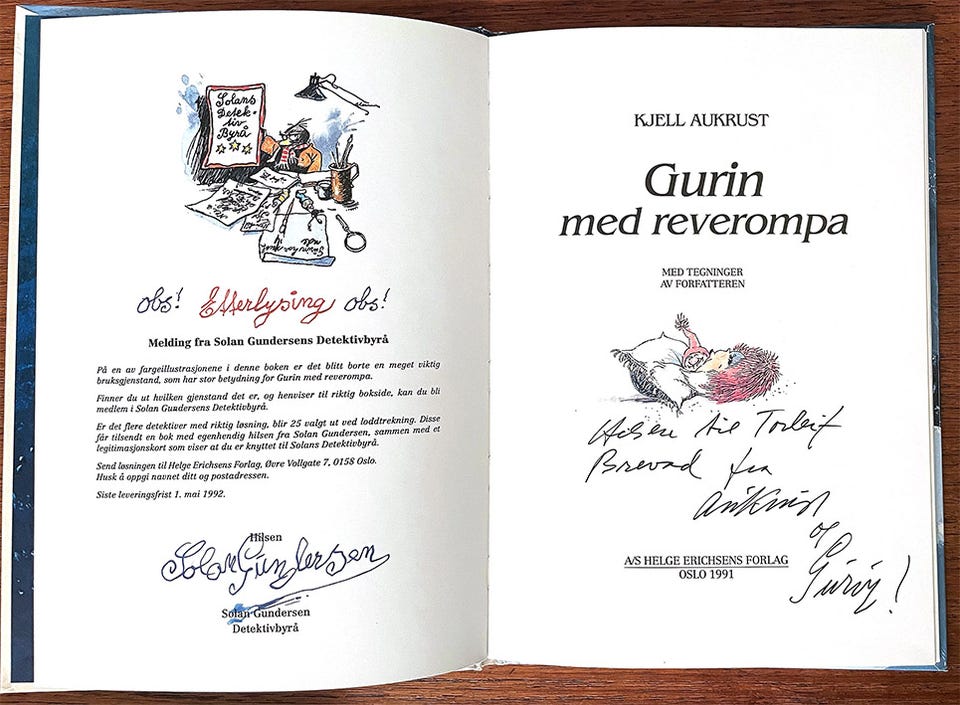 Solans
Detek-
tiv
Byrå
obs! Etterlysing obs!
Melding fra Solan Gundersens Detektivbyrå
På en av fargeillustrasjonene i denne boken er det blitt borte en meget viktig
bruksgjenstand, som har stor betydning for Gurin med reverompa.
Finner du ut hvilken gjenstand det er, og henviser til riktig bokside, kan du bli
medlem i Solan Gundersens Detektivbyrå.
Er det flere detektiver med riktig løsning, blir 25 valgt ut ved loddtrekning. Disse
får tilsendt en bok med egenhendig hilsen fra Solan Gundersen, sammen med et
legitimasjonskort som viser at du er knyttet til Solans Detektivbyrå.
Send løsningen til Helge Erichsens Forlag, Øvre Vollgate 7, 0158 Oslo.
Husk å oppgi navnet ditt og postadressen.
Siste leveringsfrist 1. mai 1992.
Hilsen
Solan Gundersen
Solan Gundersen
Detektivbyrå
KJELL AUKRUST
Gurin
med reverompa
MED TEGNINGER
AV FORFATTEREN
Hilsen til Torleif
Brevad fra
Aukrust
og
Gurin!
A/S HELGE ERICHSENS FORLAG
OSLO 1991